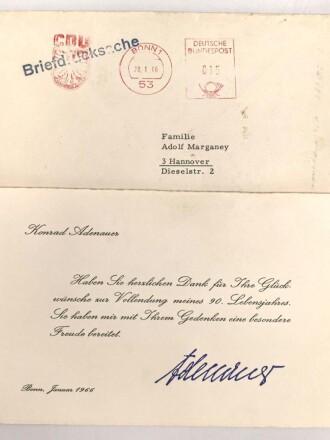 CDU
Briefdrucksache
BONN 1
28.1.66
53
DEUTSCHE
BUNDESPOST
015
Familie
Adolf Marganey
3 Hannover
Dieselstr. 2
Konrad Adenauer
Haben Sie herzlichen Dank für Ihre Glück-
wünsche zur Vollendung meines 90. Lebensjahres.
Sie haben mir mit Ihrem Gedenken eine besondere
Freude bereitet.
Adenauer
Bonn, Januar 1966